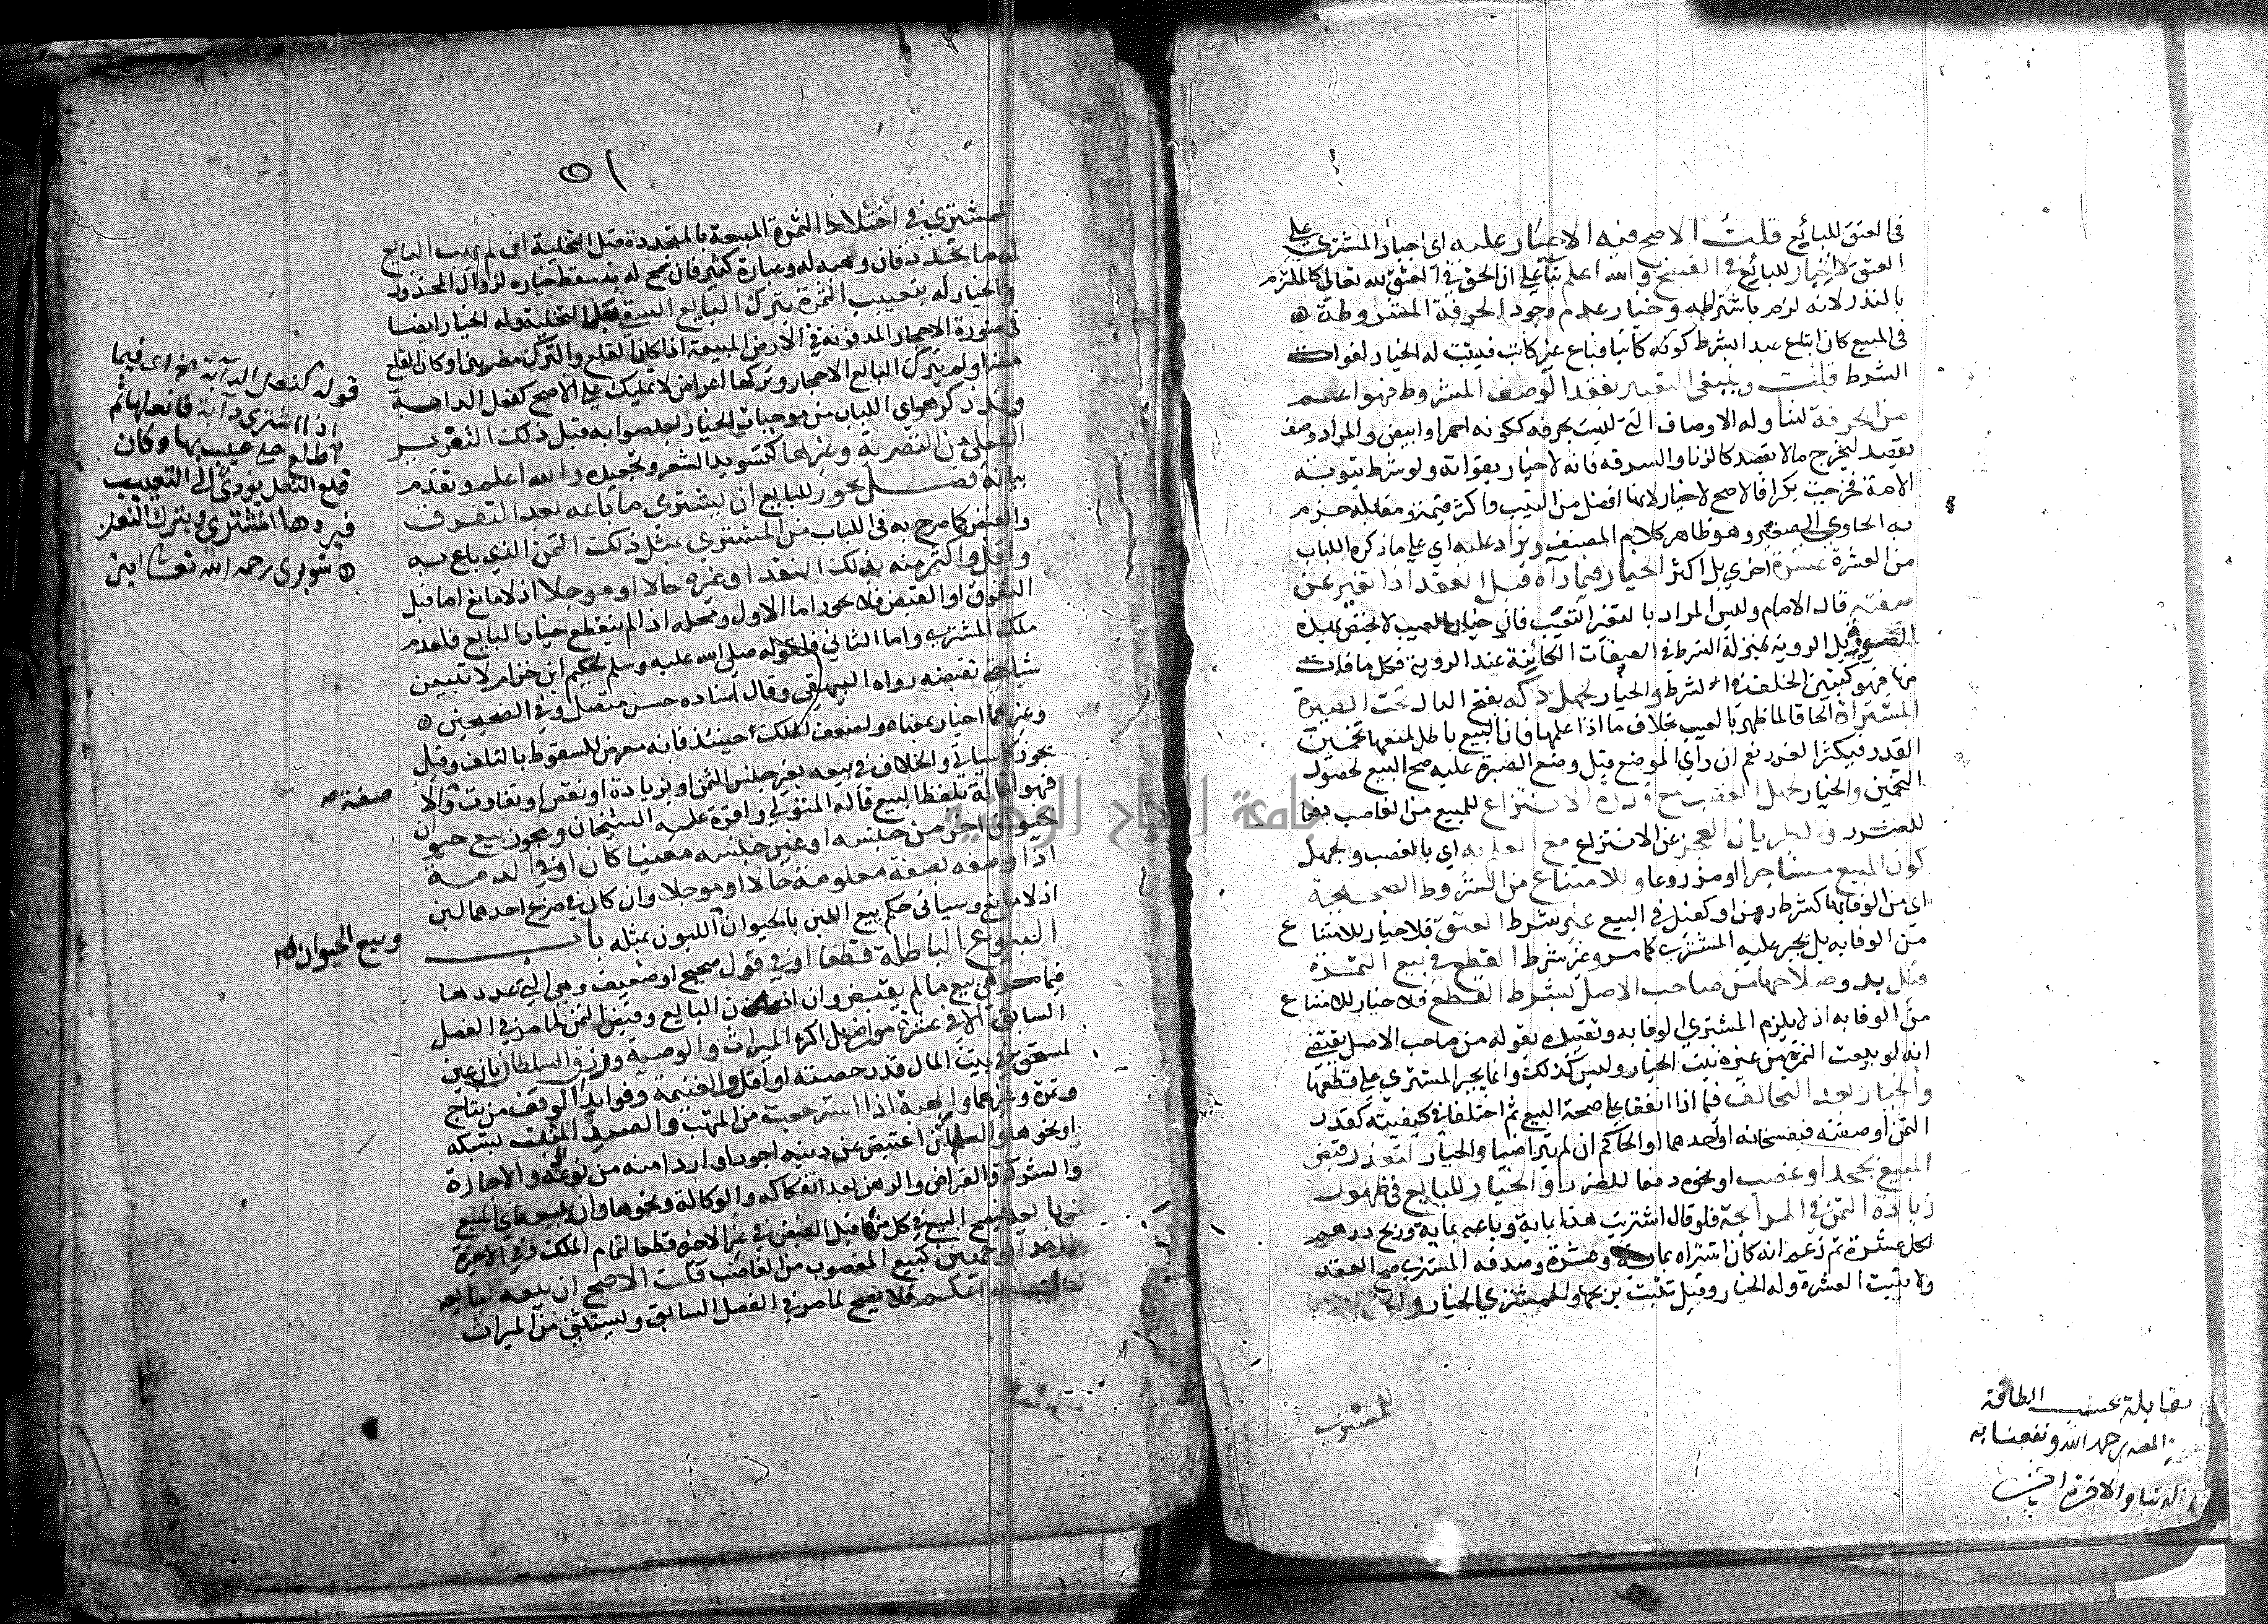 في العتق للبائع قلت الاصح فيه الاجبار عليه اي اجبار المشتري على
العتق لا خيار للبائع في الفسخ والله اعلم بناء على ان الحق في العتق لله تعالى كالملتزم
بالنذر لانه لزم باشتراطه وخيار عدم وجود الحرفة المشروطة
في المبيع كان ابتاع عبدا بشرط كونه كاتبا فباع غير كاتب فيثبت له الخيار لفوات
الشرط قلت وينبغي التعبير بفقد الوصف المشروط فهو اعم
من الحرفة لتناوله الاوصاف التي ليست بحرفة ككونه احمر او ابيض والمراد وصف
يقصد ليخرج مالا يقصد كالزنا والسرقة فانه لا خيار بفواته ولو شرط ثيوبة
الامة فخرجت بكرا فالاصح لا خيار لانها افضل من الثيب واكثر قيمة ومقابله جزم
به الحاوي الصغير وهو ظاهر كلام المصنف ويزاد عليه اي على ما ذكره اللباب
من العشرة عشرة اخرى بل اكثر الخيار فيما رآه قبل العقد اذا تغير عن
صفته قال الامام وليس المراد بالتغير التعيب فان خيار العيب لا يختص بهذه
الصورة بل الروية بمنزلة الشرط في الصفات الكائنة عند الروية فكل ما فات
منها فهو كتبين الخلف في الشرط والخيار لجهل دكة بفتح الدال تحت الصبرة
المشتراة الحاقا لما ظهر بالعيب بخلاف ما اذا علمها فان البيع باطل لمنعها تخمين
القدر فيكثر الغرر نعم ان راى الموضع قبل وضع الصبرة عليه صح البيع لحصول
التخمين والخيار لجهل الغصب مع قدرة الانتزاع للمبيع من الغاصب دفعا
للضرر ولطريان العجز عن الانتزاع مع العلم به اي بالغصب ولجهل
كون المبيع مستاجرا او مزروعا وللامتناع من الشروط الصحيحة
اي من الوفا بها كشرط رهن او كفيل في البيع غير شرط العتق فلا خيار للامتناع
من الوفا به بل يجبر عليه المشتري كما مر وغير شرط القطع في بيع الثمرة
قبل بدو صلاحها من صاحب الاصل بشرط القطع فلا خيار للامتناع
من الوفا به اذ لا يلزم المشتري الوفا به وتقييده بقوله من صاحب الاصل يقتضي
انه لو بيعت الثمرة من غيره ثبت الخيار وليس كذلك وانما يجبر المشتري على قطعها
والخيار بعد التحالف فيما اذا اتفقا على صحة البيع ثم اختلفا في كيفيته كقدر
الثمن او صفته فيفسخانه او احدهما او الحاكم ان لم يتراضيا والخيار لتعذر قبض
المبيع بجحد او غصب او نحوه دفعا للضرر والخيار للبائع في ظهور
زيادة الثمن في المرابحة فلو قال اشتريت هذا بماية وباعه بماية وربح درهم
لكل عشرة ثم زعم انه كان اشتراه بماية وعشرة وصدقه المشتري صح العقد
ولا تثبت العشرة وله الخيار وقيل تثبت بربحها وللمشتري الخيار
للمشتري
مقابلة بحسب الطاقة
رحمه الله ونفعنا به
الدنيا والاخرة
٥١
للمشتري في اختلاط الثمرة المبيعة بالمتجددة قبل التخلية ان لم يهب البايع
له ما تجدد فان وهبه له وعبارة كثير فان سمح له به سقط خياره لزوال المحذور
والخيار له بتعييب الثمرة بترك البايع السقي قبل التخلية وله الخيار ايضا
في صورة الاحجار المدفونة في الارض المبيعة اذا كان القلع والترك مضرين او كان القلع
مضرا ولم يترك البايع الاحجار وتركها اعراض لا تمليك على الاصح كنعل الدابة
وقد ذكر هو اي اللباب من موجبات الخيار لخلصوا به قبل ذلك التغرير
الفعلي من التصرية وغيرها كتسويد الشعر وتجعيده والله اعلم وتقدم
بيانه فصل يجوز للبايع ان يشتري ما باعه بعد التفرق
والقبض كما صرح به في اللباب من المشتري بمثل ذلك الثمن الذي باع به
واقل واكثر منه بذلك النقد او غيره حالا او موجلا اذ لا مانع اما قبل
التفرق او القبض فلا يجوز اما الاول ومحله اذا لم ينقطع خيار البايع فلعدم
ملك المشتري واما الثاني فلقوله صلى الله عليه وسلم لحكيم ابن حزام لا تبيعن
شيا حتى تقبضه رواه البيهقي وقال اسناده حسن متصل وفي الصحيحين
وغيرهما اخبار بمعناه ولضعف الملك حينئذ فانه معرض للسقوط بالتلف وقيل
يجوز كما سياتي والخلاف في بيعه بغير جنس الثمن او بزيادة او نقص او تفاوت والا
فهو اقالة بلفظ البيع قاله المتولي واقره عليه الشيخان ويجوز بيع حيوان
بحيوان اخر من جنسه او غير جنسه معينا كان او في الذمة
اذا وصفه بصفة معلومة حالا او موجلا وان كان في ضرع احدهما لبن
اذ لا مانع وسيأتي حكم بيع اللبن بالحيوان اللبون بمثله باب
البيوع الباطلة قطعا او في قول صحيح او ضعيف وهي التي عددها
فيما مر هي بيع مالم يقبض وان اذن البايع وقبض الثمن لما مر في الفصل
السابق الا في عشرة مواضع بل اكثر الميراث والوصية ورزق السلطان بان عين
لمستحق في بيت المال قدر حصته او اقل والغنيمة وفوايد الوقف من نتاج
وثمرة وغيرهما والهبة اذا استرجعت من المتهب والصيد المثبت بشبكة
او نحوها والسلم بان اعتيض عن دينه اجود او اردا منه من نوعه والاجارة
والشركة والقراض والرهن بعد انفكاكه والوكالة ونحوها وان بيع هاي المبيع
من بايعه فيصح البيع في كل منها قبل القبض في غير الاخيرة قطعا لتمام الملك وفي الاخيرة
كبيع المغصوب من الغاصب قلت الاصح ان بيعه لبايعه
فلا يصح لما مر في الفصل السابق ويستثنى من الميراث
قوله كنعل الدابة الخ اي فيما
اذا اشترى دابة فانعلها ثم
اطلع على عيب بها وكان
قلع النعل يؤدي الى التعييب
فيردها المشتري ويترك النعل
شوبري رحمه الله تعالى
صفة صح
وبيع الحيوان